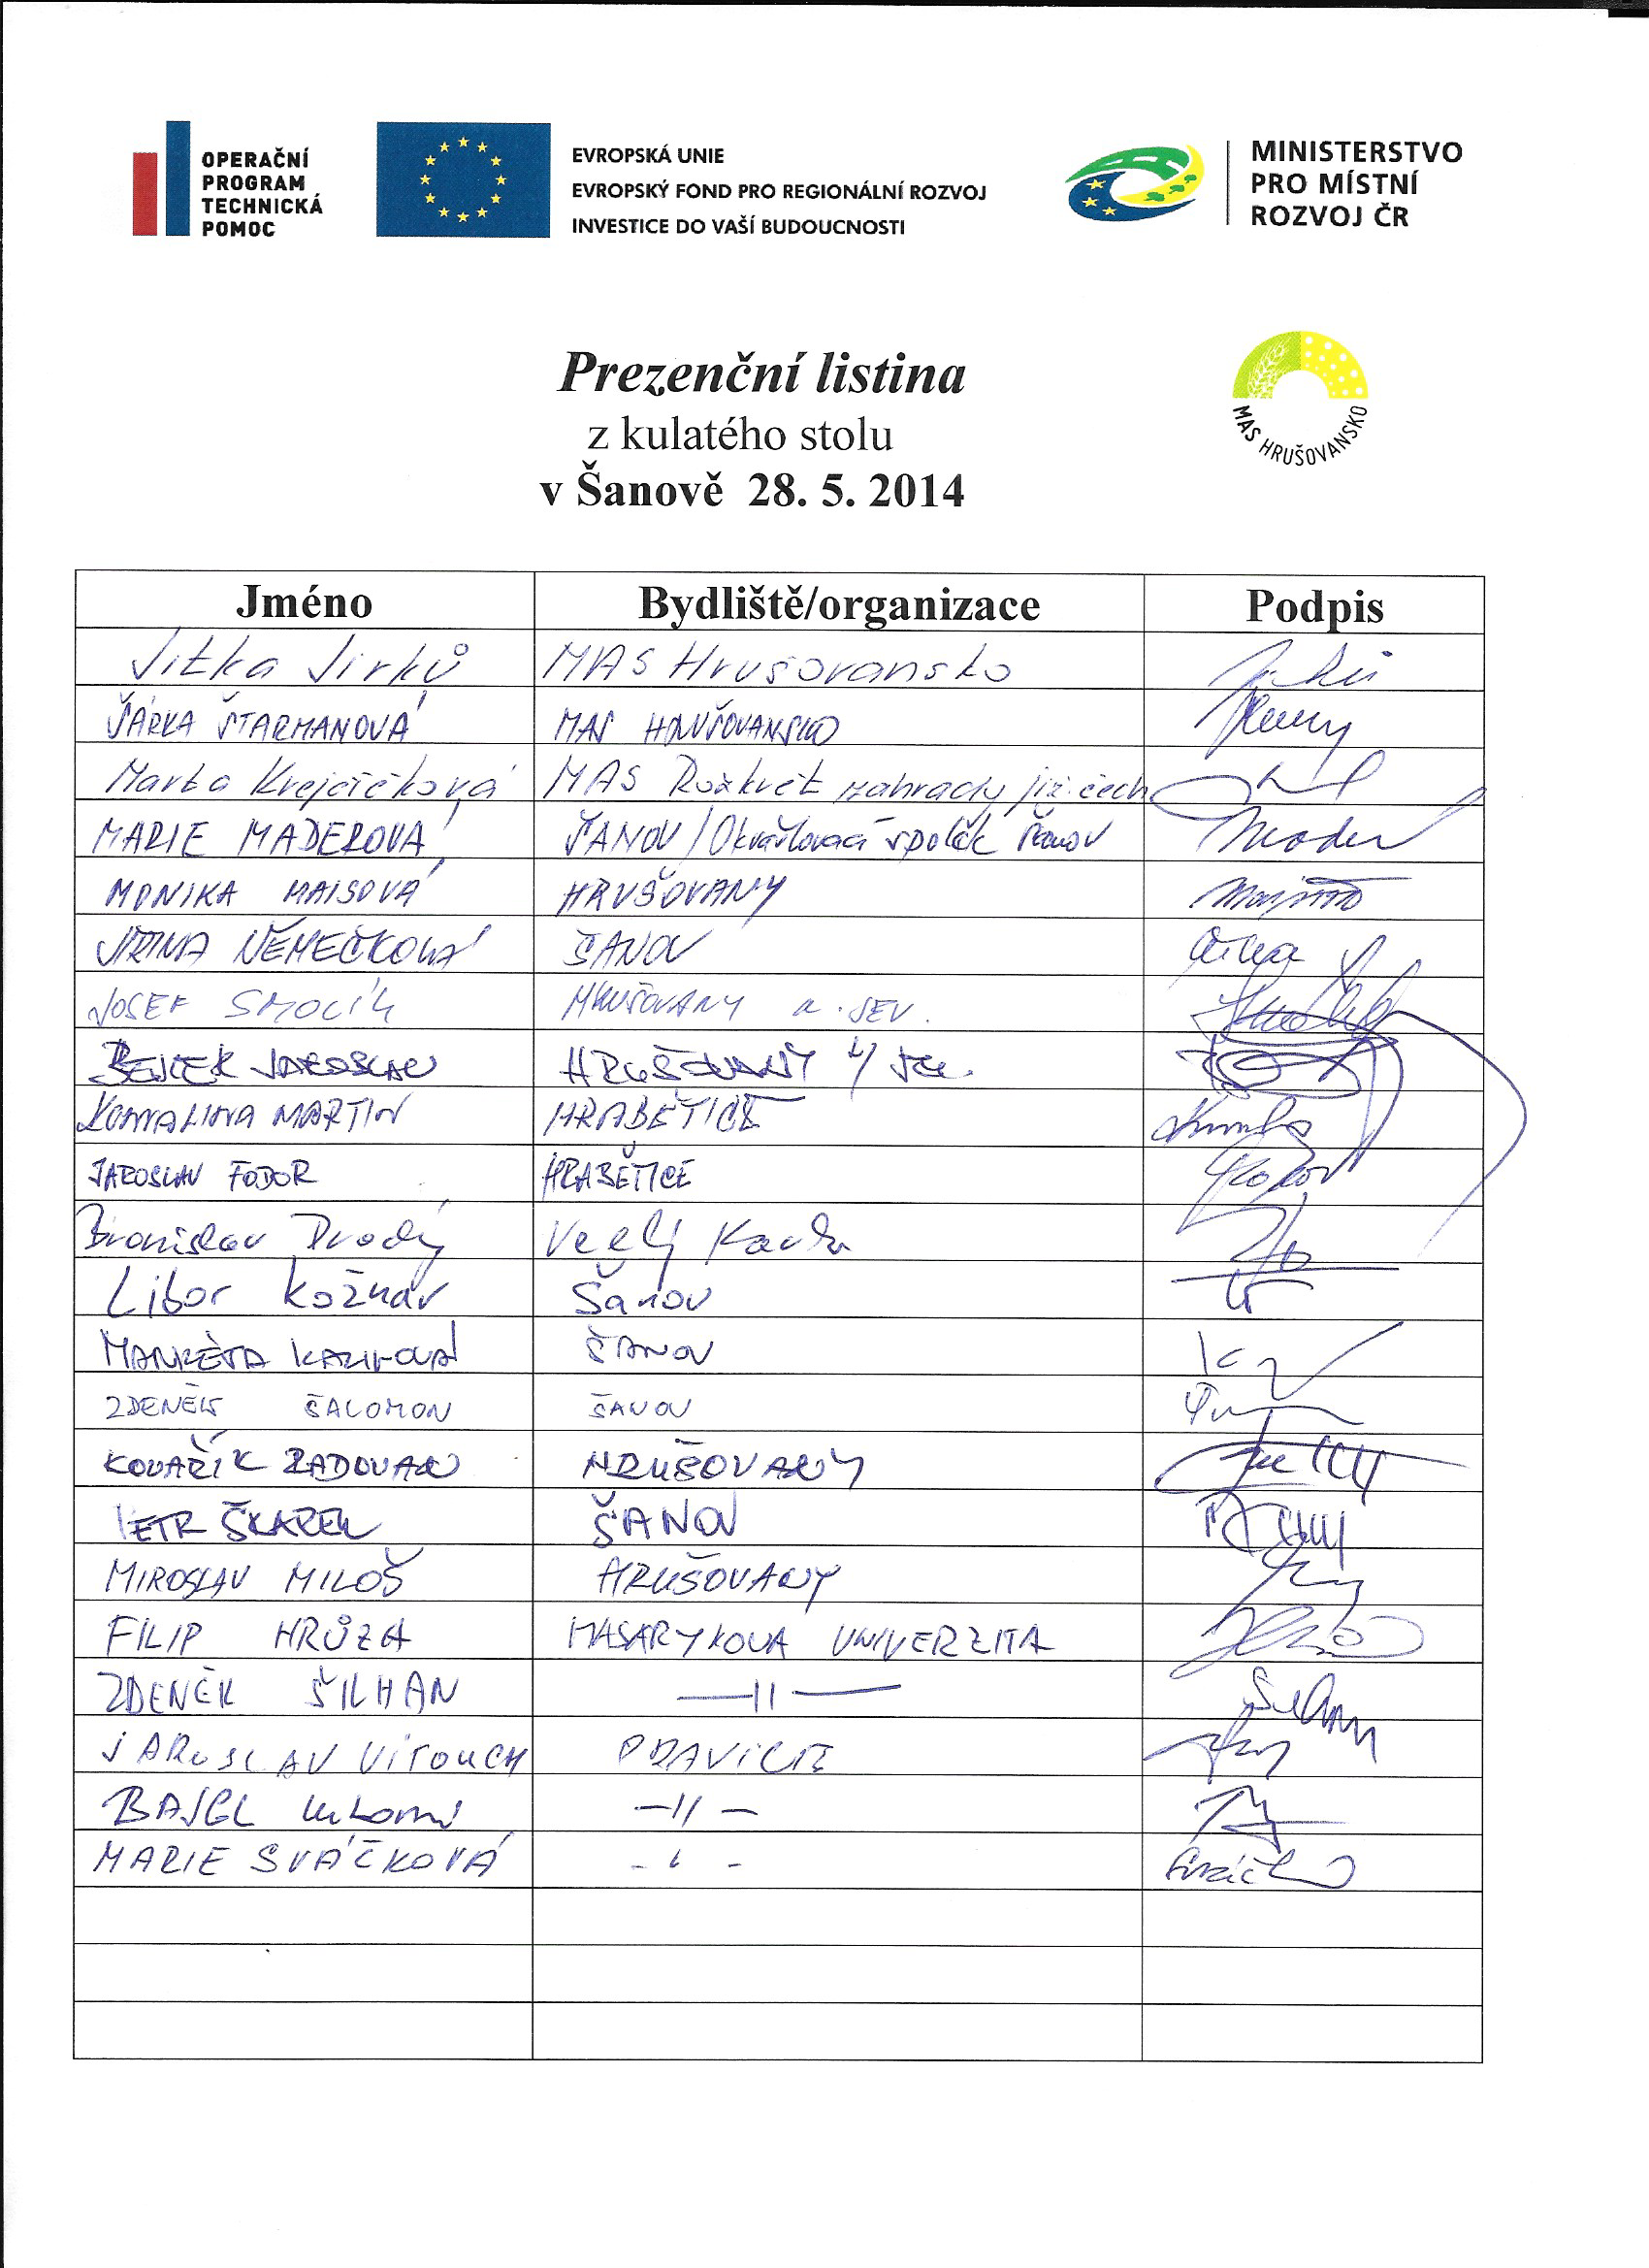 OPERAČNÍ
PROGRAM
TECHNICKÁ
POMOC
EVROPSKÁ UNIE
EVROPSKÝ FOND PRO REGIONÁLNÍ ROZVOJ
INVESTICE DO VAŠÍ BUDOUCNOSTI
MINISTERSTVO
PRO MÍSTNÍ
ROZVOJ ČR
MAS HRUŠOVANSKO
Prezenční listina
z kulatého stolu
v Šanově 28. 5. 2014
Jméno Bydliště/organizace Podpis
Jitka Jirků MAS Hrušovansko
ŠÁRKA ŠTARMANOVÁ MAS HRUŠOVANSKO
Marta Krejčíčková MAS Rozkvět zahrady již. čech
MARIE MADEROVÁ ŠANOV / Okrašlovací spolek Šanov
MONIKA MAISOVÁ HRUŠOVANY
JIŘINA NĚMEČKOVÁ ŠANOV
JOSEF SMOLÍK HRUŠOVANY n. JEV.
JAROSLAV HRUŠOVANY
MARTIN HRABĚTICE
JAROSLAV FODOR HRABĚTICE
Bronislav Velký
Libor Kožnar Šanov
MARKÉTA ŠANOV
ZDENĚK ŠALOMON ŠANOV
KOVAŘÍK RADOVAN HRUŠOVANY
PETR ŠKAREK ŠANOV
MIROSLAV MILOŠ HRUŠOVANY
FILIP HRŮZA MASARYKOVA UNIVERZITA
ZDENĚK ŠILHAN —II—
JAROSLAV VITOUCH PRAVICE
BAJGL —II—
MARIE SVÁČKOVÁ